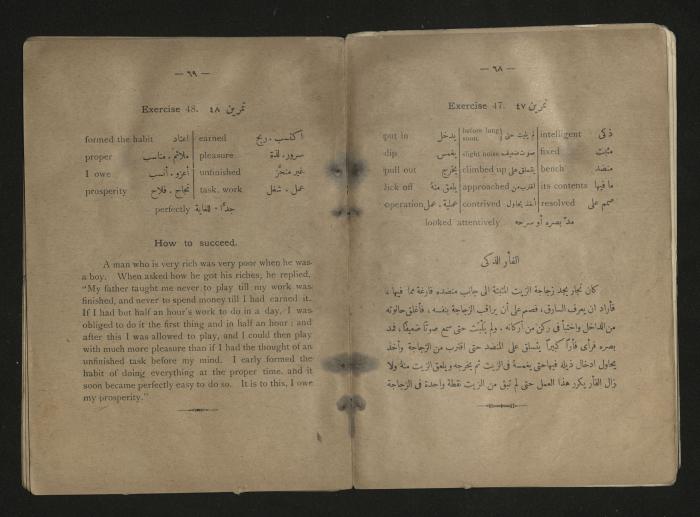 — ٦٨ —
Exercise 47. تمرين ٤٧
put in يدخل before long soon. لم يلبث حتى intelligent ذكى
dip يغمس slight noise صوت ضعيف fixed مثبت
pull out يخرج climbed up يتسلق على bench منضد
lick off يلعق منة approached اقترب من its contents ما فيها
operation عملية. عمل contrived أخذ يحاول resolved صمم على
looked attentively مد بصره أو سرحه
الفأر الذكى
كان نجار يجد زجاجة الزيت المثبتة الى جانب منضده فارغة مما فيها ،
فأراد ان يعرف السارق، فصمم على أن يراقب الزجاجة بنفسه ، فأغلق حانوته
من الداخل واختبأ فى ركن من أركانه . ولم يلبث حتى سمع صوتًا ضعيفًا، فمد
بصره فرأى فأرًا كبيرًا يتسلق على المنضد حتى اقترب من الزجاجة وأخذ
يحاول ادخال ذيله فيها حتى يغمسة فى الزيت ثم يخرجه ويلعق الزيت منة ولا
زال الفأر يكرر هذا العمل حتى لم تبق من الزيت نقطة واحدة فى الزجاجة
— ٦٩ —
Exercise 48. تمرين ٤٨
formed the habit اعتاد earned اكتسب . ربح
proper ملائم . مناسب pleasure سرور . لذة
I owe أعزو . أنسب unfinished غير منجَّز
prosperity نجاح . فلاح task. work عمل . شغل
perfectly جدًّا . للغاية
How to succeed.
A man who is very rich was very poor when he was
a boy. When asked how he got his riches, he replied,
"My father taught me never to play till my work was
finished, and never to spend money till I had earned it.
If I had but half an hour's work to do in a day, I was
obliged to do it the first thing and in half an hour ; and
after this I was allowed to play, and I could then play
with much more pleasure than if I had the thought of an
unfinished task before my mind. I early formed the
habit of doing everything at the proper time, and it
soon became perfectly easy to do so. It is to this, I owe
my prosperity."